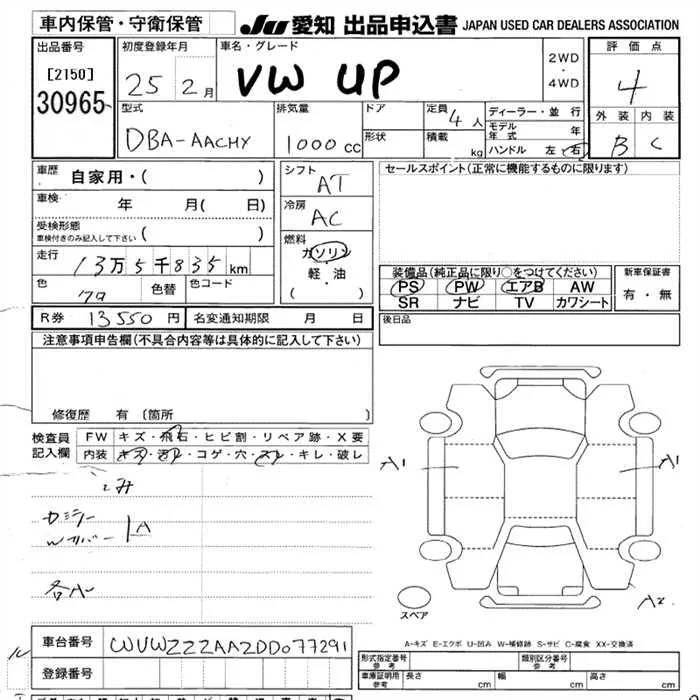 車内保管・守衛保管
JU 愛知 出品申込書 JAPAN USED CAR DEALERS ASSOCIATION
出品番号
[2150]
30965
初度登録年月
25 2月
車名・グレード
VW UP
2WD
・
4WD
評価点
4
外装 内装
B C
型式
DBA-AACHY
排気量
1000cc
ドア
形状
定員 4人
積載 kg
ディーラー・並行
モデル年式 年
ハンドル 左・右
車歴 自家用・( )
車検 年 月( 日)
受検形態
車検付きのみ記入して下さい ( )
走行 13万5千835km
色 色替 色コード
シフト
AT
冷房
AC
燃料
ガソリン
軽・油
( ・ )
セールスポイント(正常に機能するものに限ります)
装備品(純正品に限り○をつけてください)
PS PW エアB AW
SR ナビ TV カワシート
新車保証書
有・無
R券 13550円 名変通知期限 月 日
後日品
注意事項申告欄(不具合内容等は具体的に記入して下さい)
修復歴 有 〔箇所 〕
検査員記入欄
FW キズ・飛石・ヒビ割・リペア跡・X要
内装 キズ・汚レ・コゲ・穴・スレ・キレ・破レ
A1
A1
A
A2
スペア
A-キズ E-エクボ U-凹み W-補修跡 S-サビ C-腐食 XX-交換済
車台番号 WVWZZZAAZDD077291
登録番号
形式指定番号 参考
類別区分番号 参考
車庫証明用 参考 長さ cm 幅 cm 高さ cm